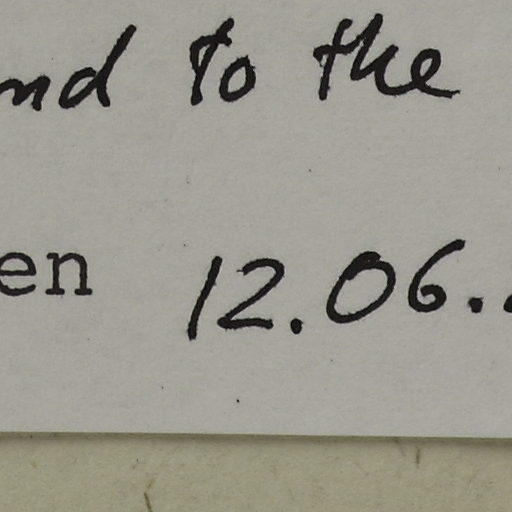 nd to the
en 12.06.